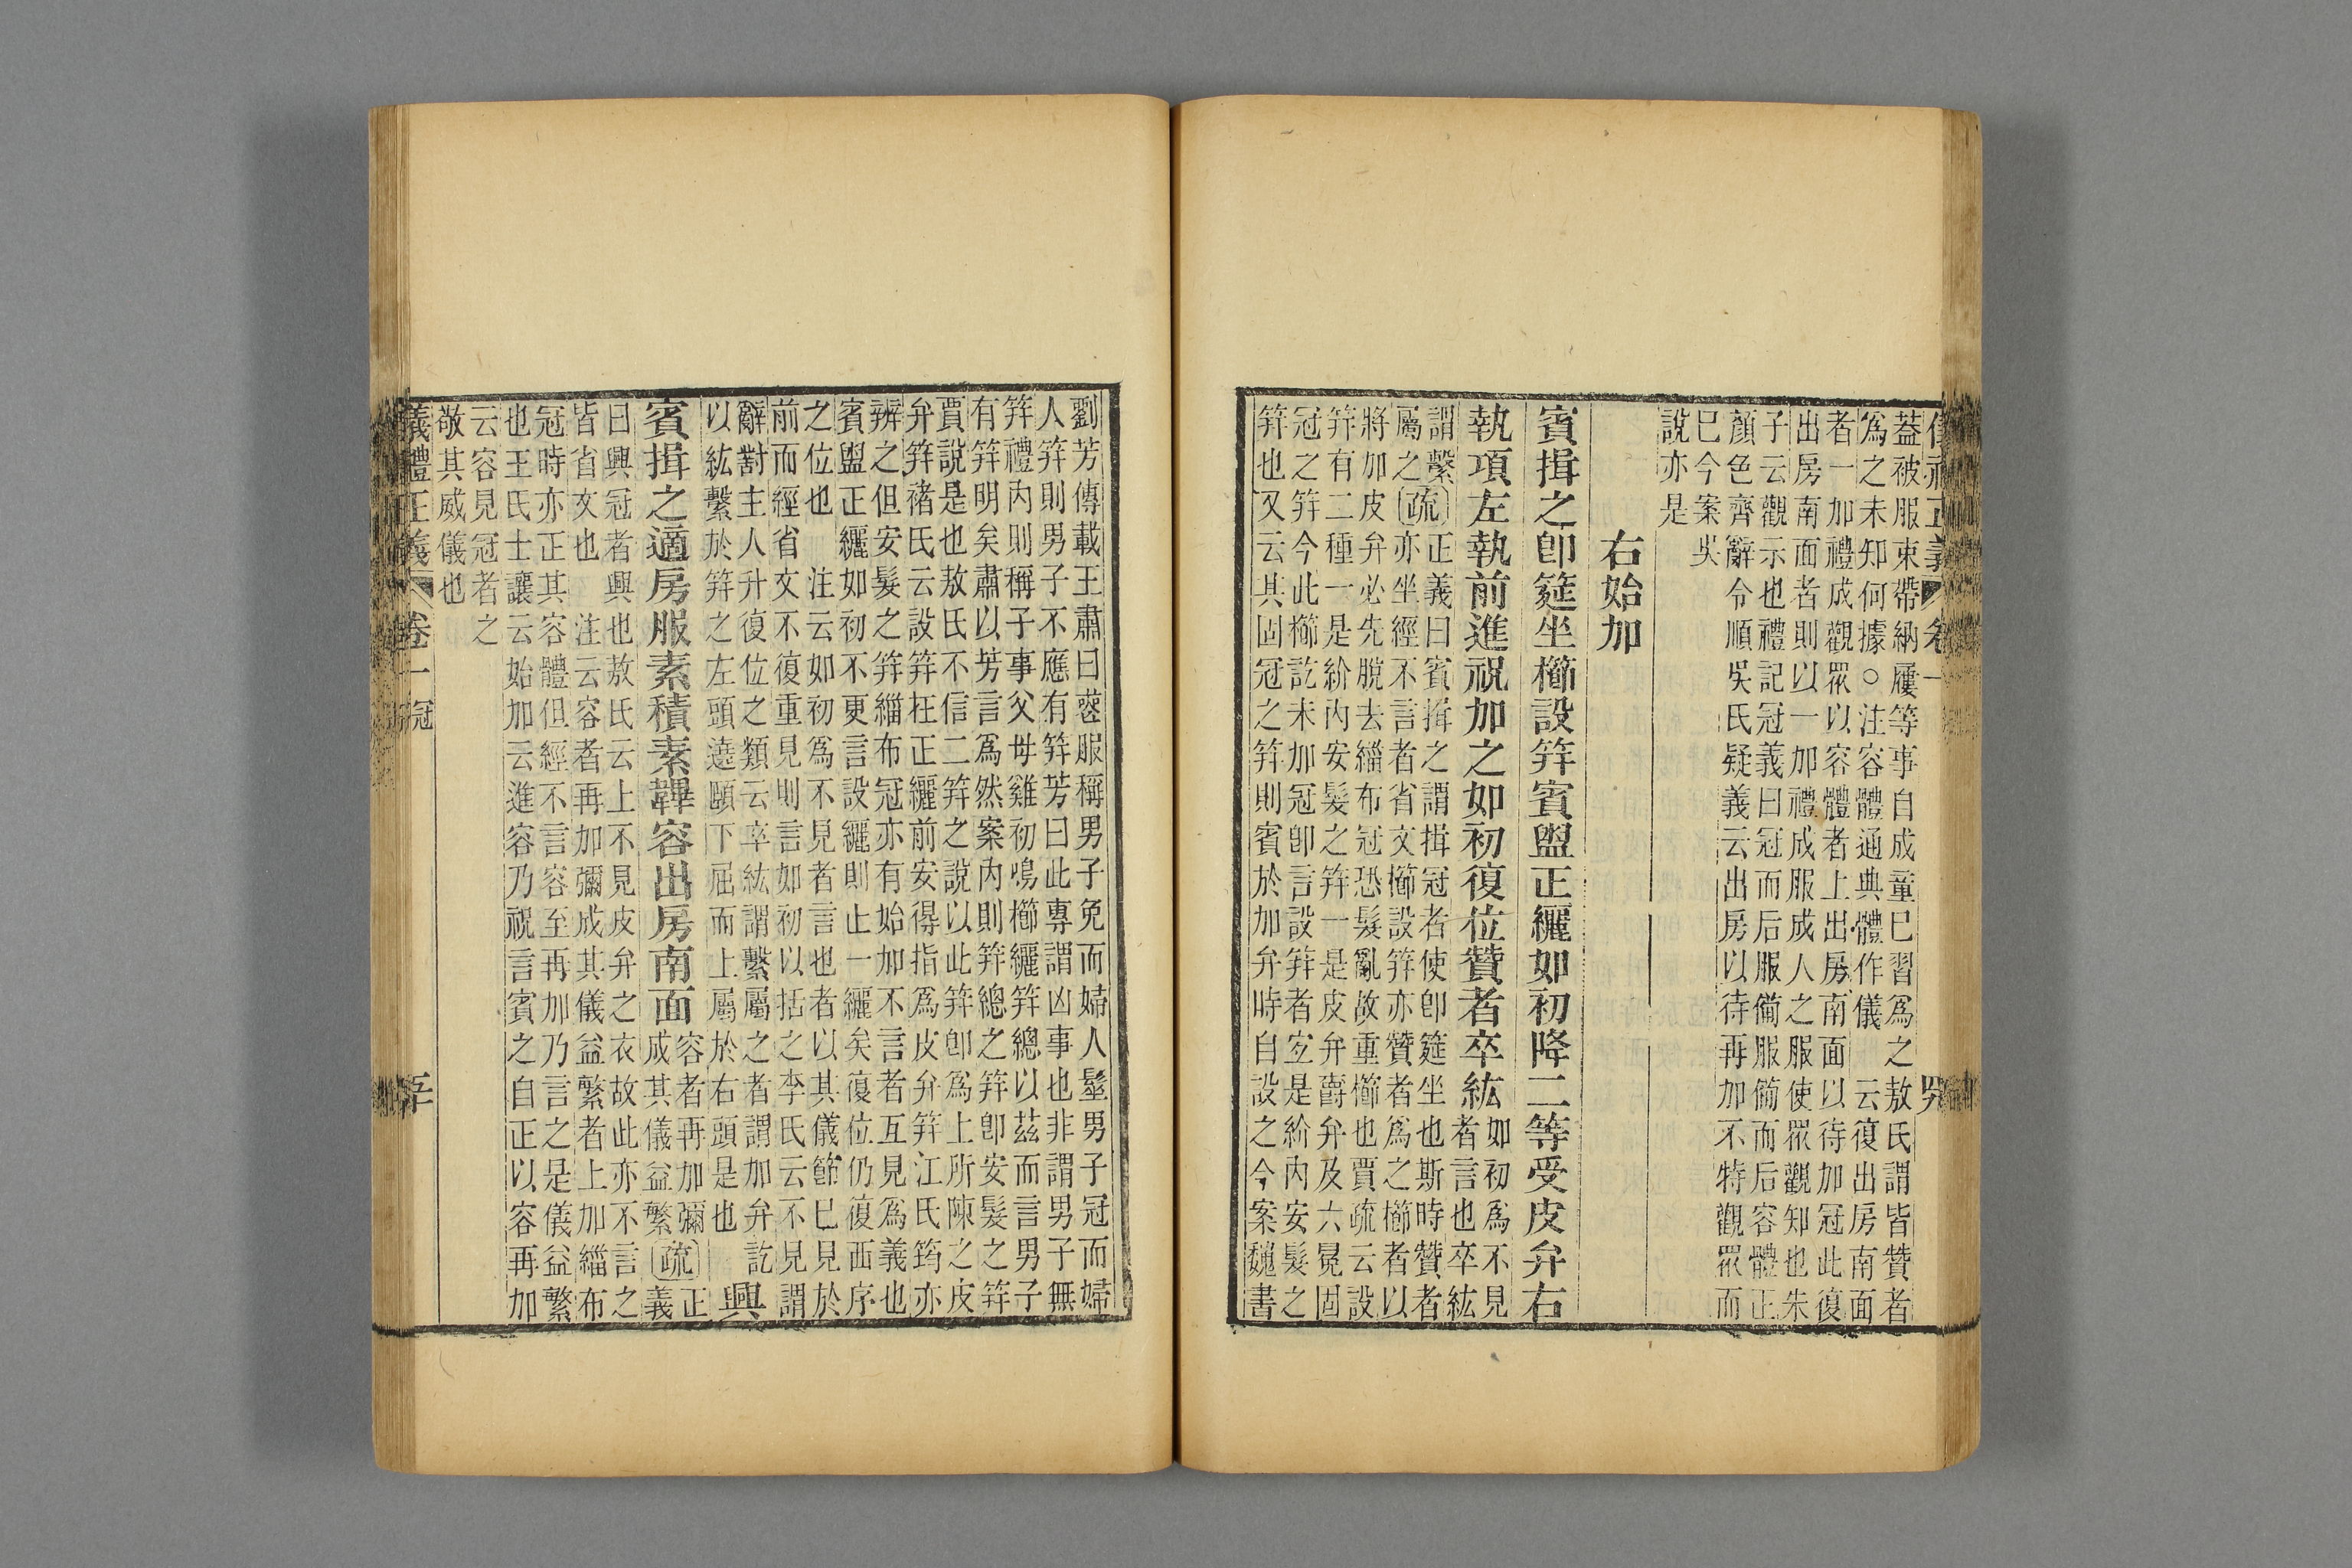 蓋被服束帶納屨等事自成童已習爲之敖氏謂皆贊者
爲之未知何據○注容體通典體作儀　云復出房南面
者一加禮成觀眾以容體者上出房南面以待加冠此復
出房南面者則以一加禮成服成人之服使眾觀知也朱
子云觀示也禮記冠義曰冠而后服備服備而后容體正
顏色齊辭令順吳氏疑義云出房以待再加不特觀眾而
已今案吳
說亦是
右始加
賓揖之卽筵坐櫛設笄賓盥正纚如初降二等受皮弁右
執項左執前進祝加之如初復位贊者卒紘
如初爲不見
者言也卒紘
謂繫
屬之
疏
正義曰賓揖之謂揖冠者使卽筵坐也斯時贊者
亦坐經不言者省文櫛設笄亦贊者爲之櫛者以
將加皮弁必先脫去緇布冠恐髮亂故重櫛也賈疏云設
笄有二種一是紒內安髮之笄一是皮弁爵弁及六冕固
冠之笄今此櫛訖未加冠卽言設笄者宜是紒內安髮之
笄也又云其固冠之笄則賓於加弁時自設之今案魏書
劉芳傳載王肅曰喪服稱男子免而婦人髽男子冠而婦
人笄則男子不應有笄芳曰此專謂凶事也非謂男子無
笄禮內則稱子事父母雞初鳴櫛纚笄總以茲而言男子
有笄明矣肅以芳言爲然案內則笄總之笄卽安髮之笄
賈說是也敖氏不信二笄之說以此笄卽爲上所陳之皮
弁笄褚氏云設笄在正纚前安得指爲皮弁笄江氏筠亦
辨之但安髮之笄緇布冠亦有始加不言者互見爲義也
賓盥正纚如初不更言設纚則止一纚矣復位仍復西序
之位也　注云如初爲不見者言也者以其儀節已見於
前而經省文不復重見則言如初以括之李氏云不見謂
辭對主人升復位之類云卒紘謂繫屬之者謂加弁訖
以紘繫於笄之左頭遶頤下屈而上屬於右頭是也
興
賓揖之適房服素積素韠容出房南面
容者再加彌
成其儀益繁
疏
正
義
曰興冠者興也敖氏云上不見皮弁之衣故此亦不言之
皆省文也　注云容者再加彌成其儀益繁者上加緇布
冠時亦正其容體但經不言容至再加乃言之是儀益繁
也王氏士讓云始加云進容乃祝言賓之自正以容再加
云容見冠者之
敬其威儀也
儀禮正義　卷一　冠